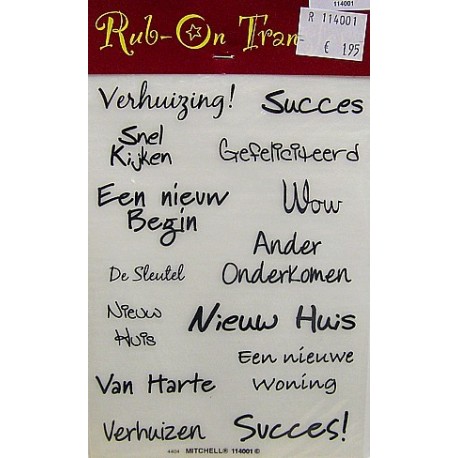 114001
Rub-On Tran
R 114001
€ 1.95
Verhuizing!
Succes
Snel
Kijken
Gefeliciteerd
Een nieuw
Begin
Wow
Ander
Onderkomen
De Sleutel
Nieuw
Huis
Nieuw Huis
Een nieuwe
Woning
Van Harte
Verhuizen
Succes!
4404 MITCHELL® 114001 ©